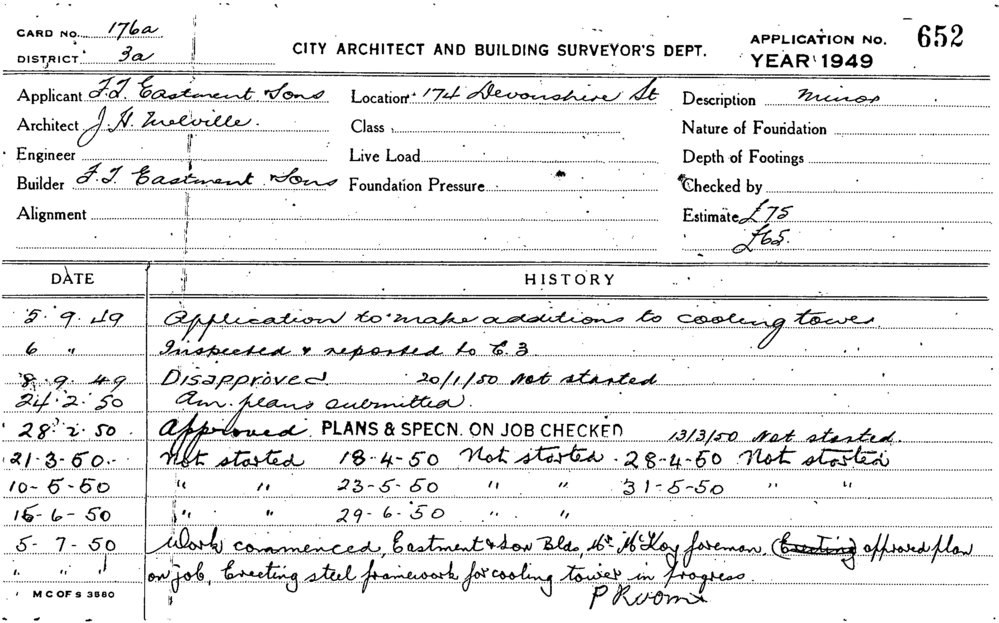 CARD NO. 176a
DISTRICT 3a
CITY ARCHITECT AND BUILDING SURVEYOR'S DEPT.
APPLICATION NO. 652
YEAR 1949
Applicant F.T. Eastment & Sons Location 174 Devonshire St Description Minor
Architect J. H. Melville. Class Nature of Foundation
Engineer Live Load Depth of Footings
Builder F.T. Eastment & Sons Foundation Pressure Checked by
Alignment Estimate £75
£65.
DATE HISTORY
5. 9. 49 Application to make additions to cooling tower.
6 " Inspected & reported to C.3
8. 9. 49 Disapproved. 20/1/50 Not started
24. 2. 50 Am. plans submitted.
28. 2. 50. Approved. PLANS & SPECN. ON JOB CHECKED 13/3/50 Not started.
21-3-50. Not started 18-4-50 Not started. 28-4-50 Not started
10-5-50 " " 23-5-50 " " 31-5-50 " "
15-6-50 " " 29-6-50 " "
5-7-50 Work commenced, Eastment & Son Bldo, Mr McKoy foreman. (Erecting) approved plan
" " " on job, Erecting steel framework for cooling tower in progress
M C OF S 3580